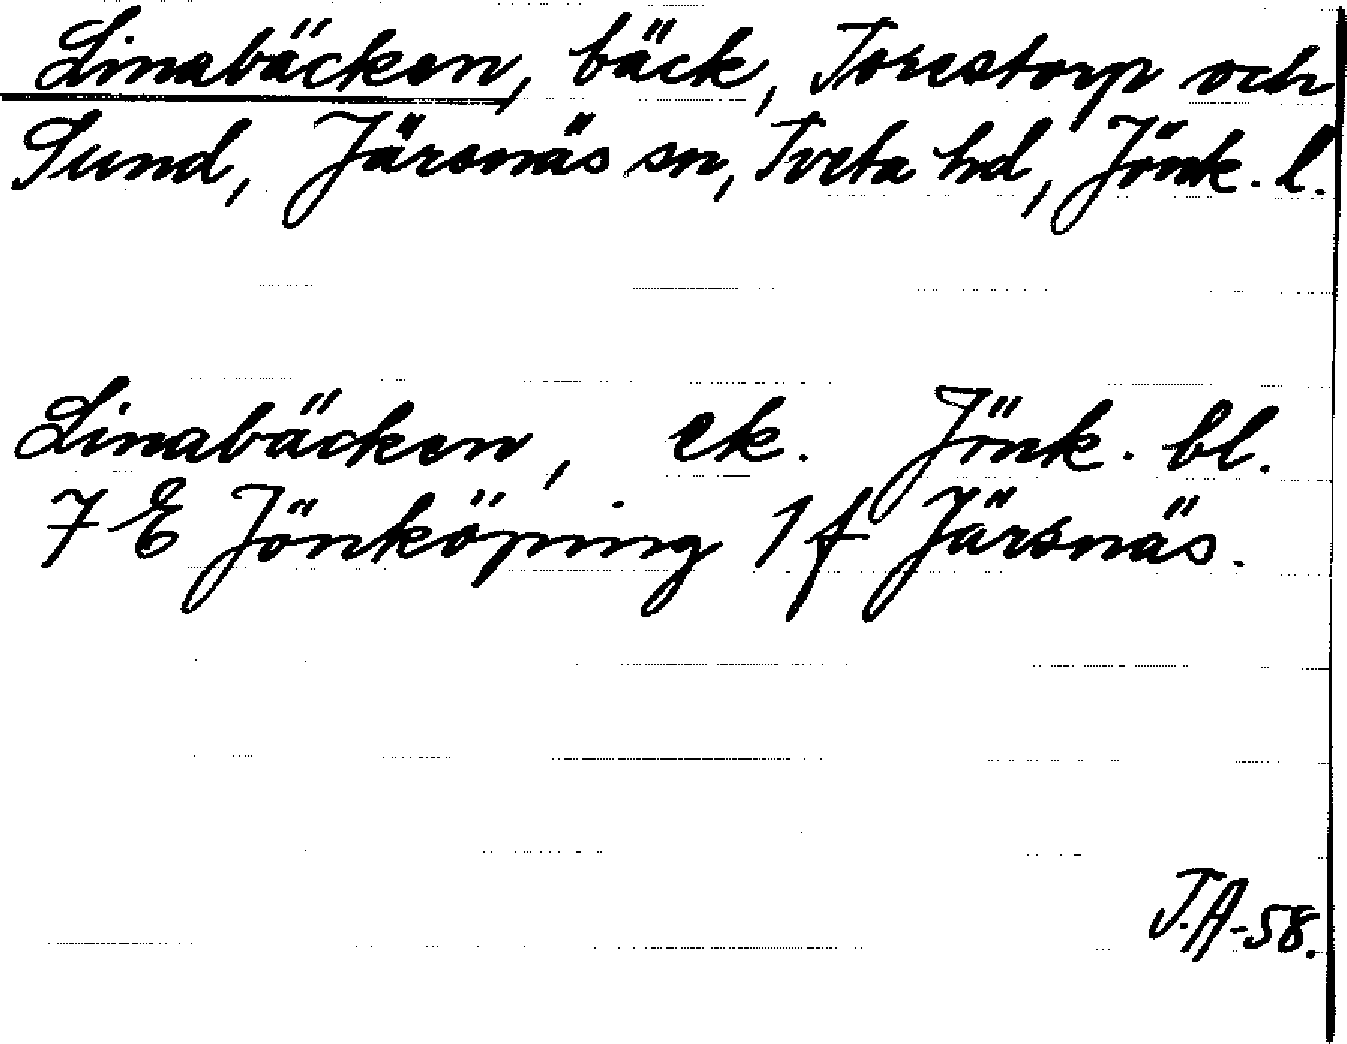 Linabäcken, bäck, Torestorp och
Sund, Järsnäs sn, Tveta hd, Jönk. l.
Linabäcken, ek. Jönk. bl.
7 E Jönköping 1 f Järsnäs.
T.A-58.